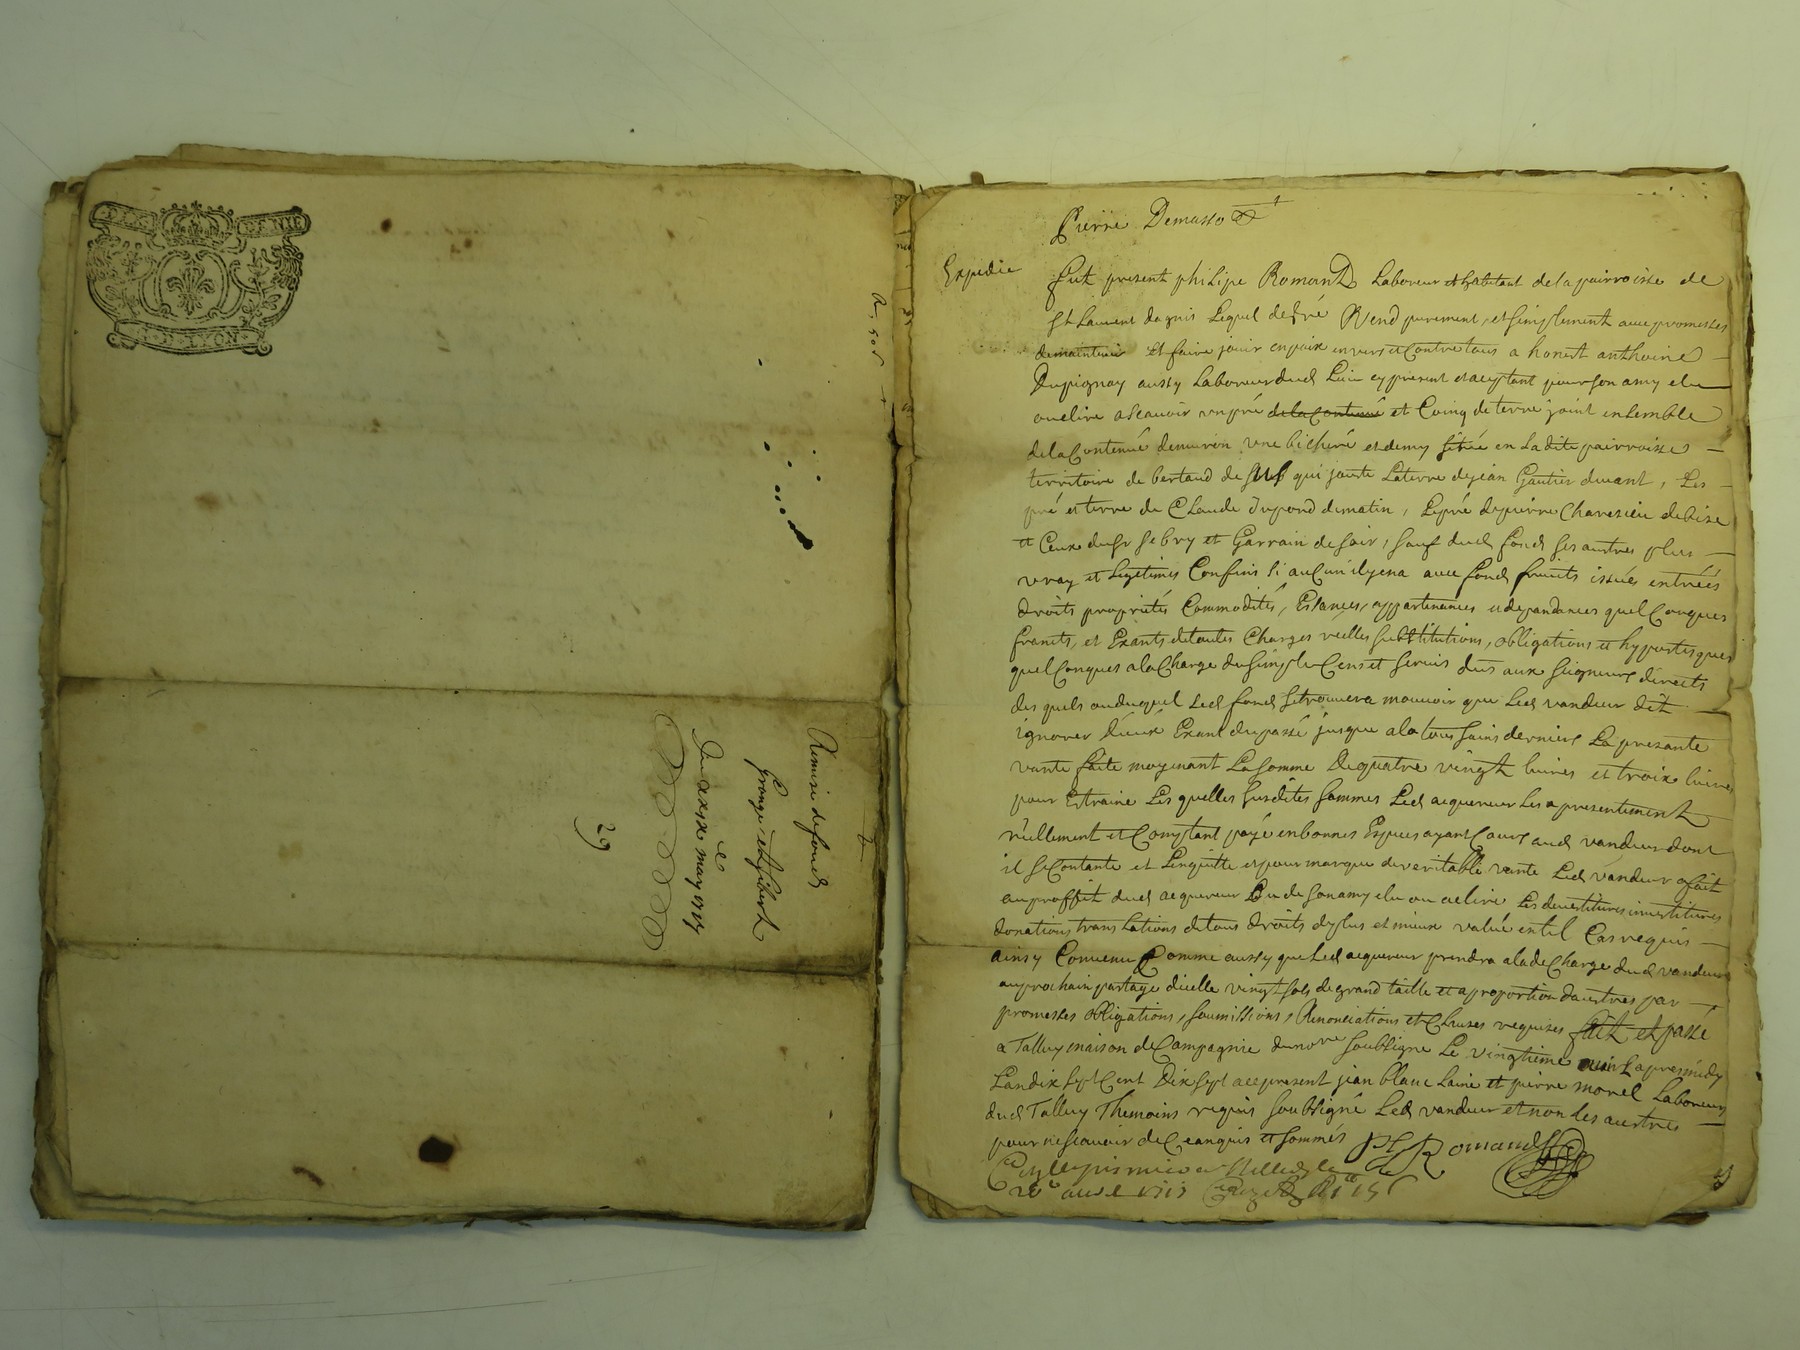 G. D. LYON
Remise de fonds
Grange et Gibert
Du xxix.e may 1715
29
Pierre Demasso
Expedie
fut present philipe Romand Laboreur et habitant de la pairroisse de
St Laurent dagnis Lequel de gré Vend purement, et simplement avec promesses
de maintenir et faire jouir en paix envers et Contre tous a honest anthoine
Dupignay aussy Laboreur dud Lieu cy present et aceptant pour son amy elu
ou elire a scavoir un pré de la Contenué et Coing de terre joint ensemble
de la Contenué denviron une bicheré et demy sitüé en Ladite pairroisse
territoire de bertaud de sus qui jouxte La terre de jean Gautier duvant, Les
pré et terre de Claude Dupond de matin, Le pré de pierre Charezieu de bize
et Ceux du sr Gebry et Garrain de soir, sauf dud fond ses autres plus
vray et Legitimes Confins si aucun il y en a avec fond fruits issües entréés
droits proprietés Commodités, Estances, appartenances et dependances quelConques
francts, et Exants de toutes Charges reélles substitutions, obligations et hypoteques
quelConques a la Charge du simple Cens et servis dus aux seigneurs directs
des quels ou duquel Led fond se trouvera mouvoir que Led vandeur dit
ignorer Dicüé Exant du passé jusque a la toussains derniere La presante
vante faite moyenant La somme De quatre vingt livres et troix livres
pour Estraine Les quelles susdites sommes Led acquereur Les a presentement
réellement et Comptant payé en bonnes Especes ayant Cours aud vandeur dont
il se Contante et Lenquitte et pour marque de veritable vante Led vandeur a fait
au proffit dud acquereur ou de son amy elu ou a elire Les devestitures investitures
donations translations de tous droits de plus et mieux valué en tel Cas requis
ainsy Convenu Comme aussy que Led acquereur prendra a la deCharge dud vandeur
au prochain partage dicelle vingt sols de grand taille et a proportion dautres par
promesses obligations, soumissions, Renonciations et Clauses requises fait et passé
a Talluy maison de Campagnie du no.re soubsigné Le vingtieme avril apresmidy
Lan dix sept Cent Dix sept a ce present jean blanc Lainé et pierre morel Laboreurs
dud Talluy Themoins requis soubsigné Led vandeur et non Les austres
pour ne scavoir de Ce enquis et sommés PhRomand